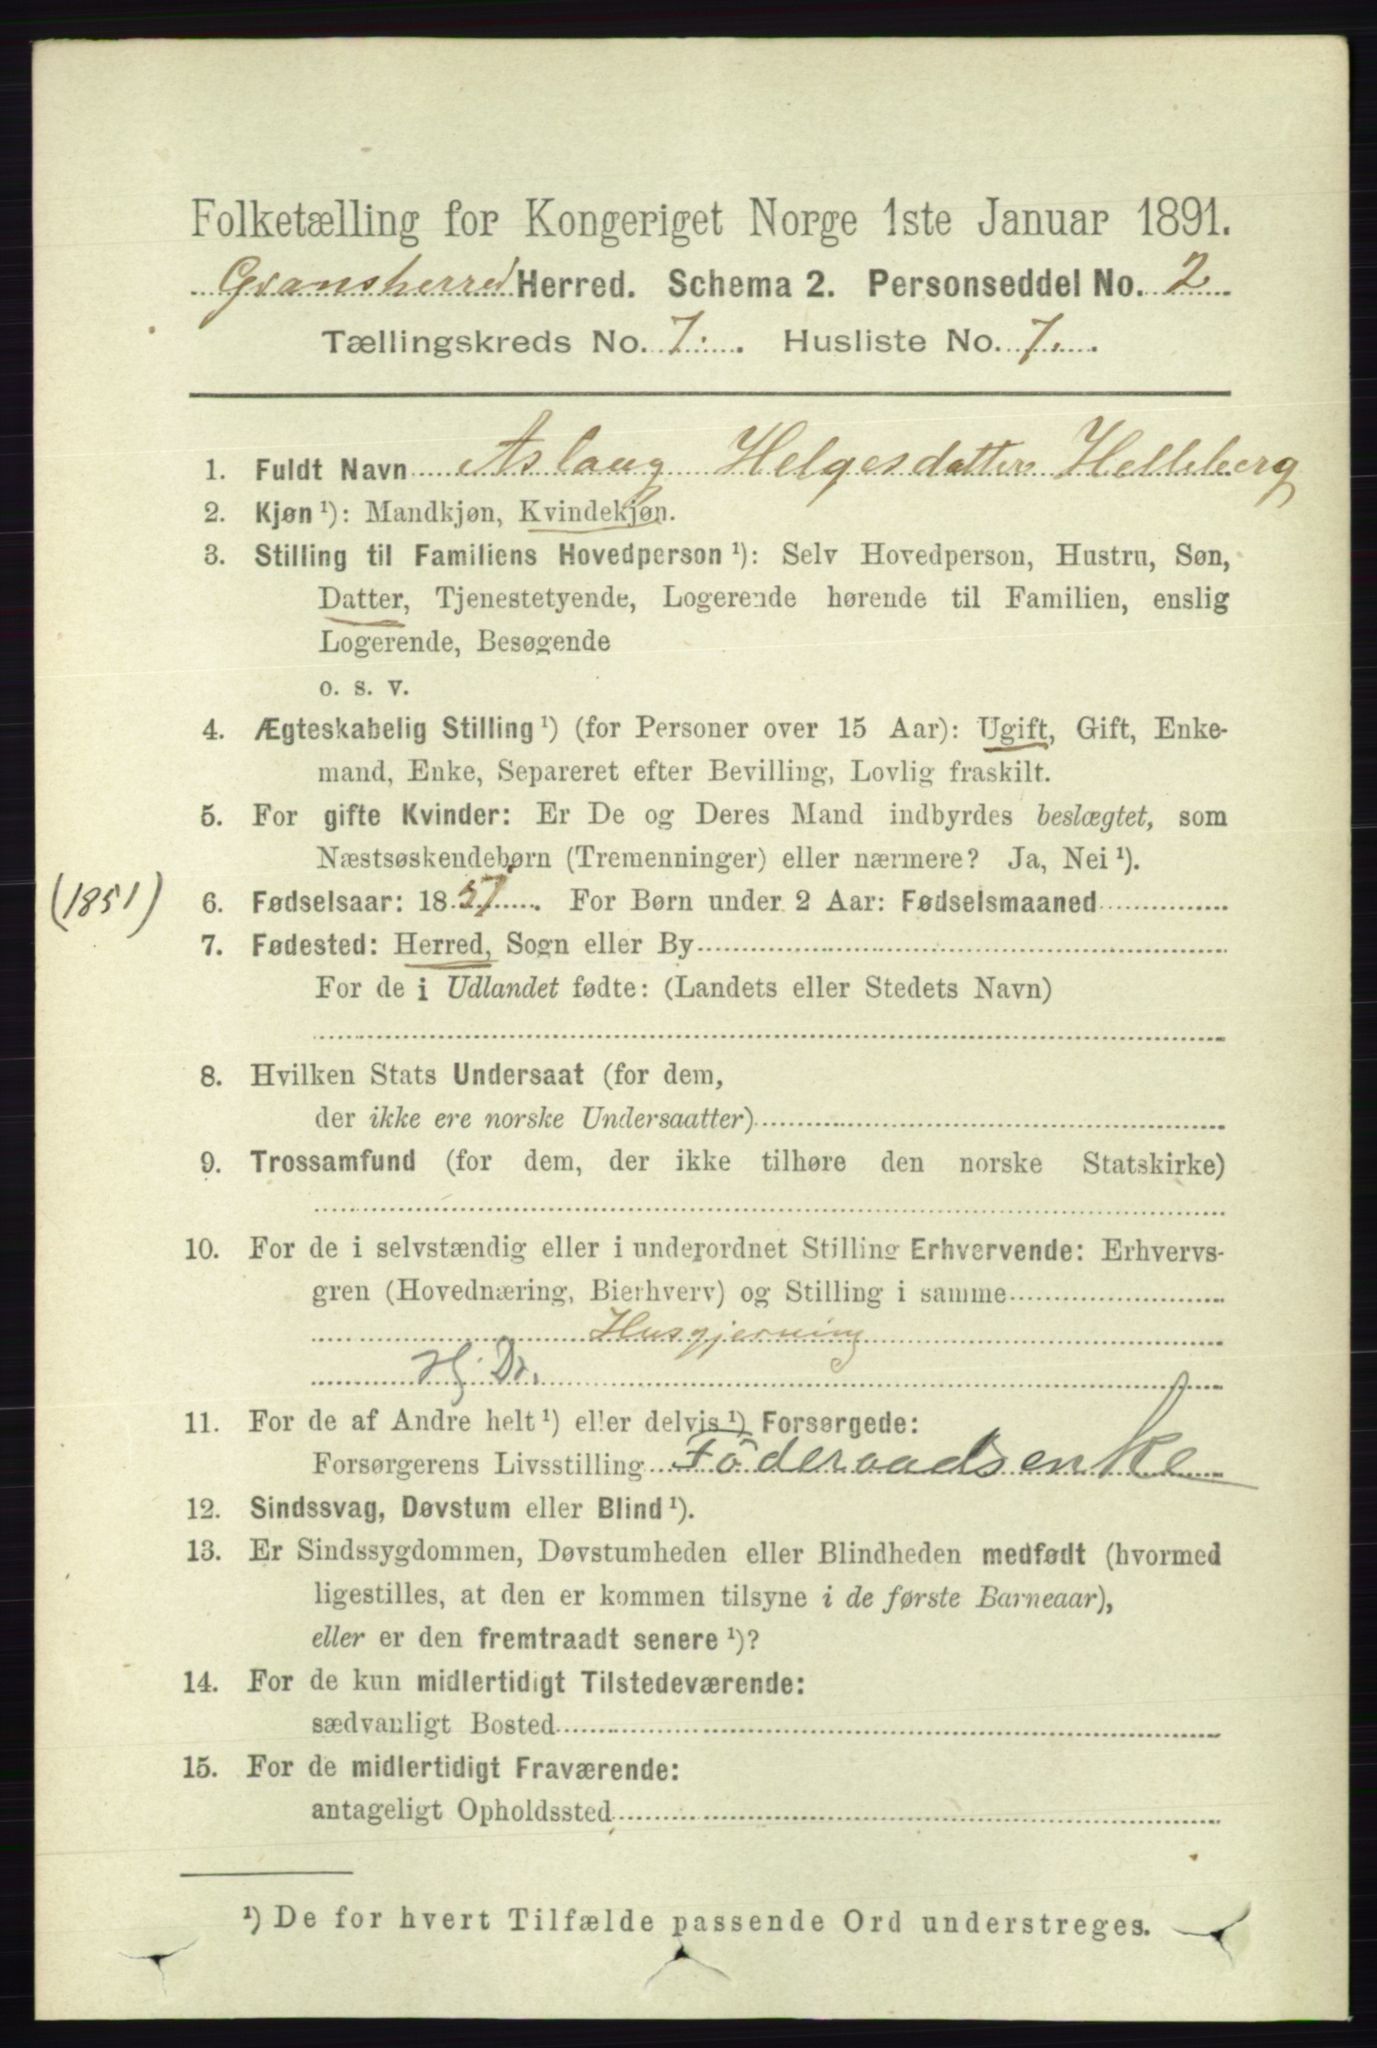 Folketælling for Kongeriget Norge 1ste Januar 1891.
Gransherred Herred. Schema 2. Personseddel No. 2
Tællingskreds No. 7. Husliste No. 7.
1. Fuldt Navn Aslaug Helgesdatter Helleberg
2. Kjøn ¹): Mandkjøn, Kvindekjøn.
3. Stilling til Familiens Hovedperson ¹): Selv Hovedperson, Hustru, Søn,
Datter, Tjenestetyende, Logerende hørende til Familien, enslig
Logerende, Besøgende
o. s. v.
4. Ægteskabelig Stilling ¹) (for Personer over 15 Aar): Ugift, Gift, Enke-
mand, Enke, Separeret efter Bevilling, Lovlig fraskilt.
5. For gifte Kvinder: Er De og Deres Mand indbyrdes beslægtet, som
Næstsøskendebørn (Tremenninger) eller nærmere? Ja, Nei ¹).
(1851) 6. Fødselsaar: 1857 For Børn under 2 Aar: Fødselsmaaned
7. Fødested: Herred, Sogn eller By
For de i Udlandet fødte: (Landets eller Stedets Navn)
8. Hvilken Stats Undersaat (for dem,
der ikke ere norske Undersaatter)
9. Trossamfund (for dem, der ikke tilhøre den norske Statskirke)
10. For de i selvstændig eller i underordnet Stilling Erhvervende: Erhvervs-
gren (Hovednæring, Bierhverv) og Stilling i samme
Husgjerning
Hj. Dr.
11. For de af Andre helt ¹) eller delvis ¹) Forsørgede:
Forsørgerens Livsstilling Föderaadsenke
12. Sindssvag, Døvstum eller Blind ¹).
13. Er Sindssygdommen, Døvstumheden eller Blindheden medfødt (hvormed
ligestilles, at den er kommen tilsyne i de første Barneaar),
eller er den fremtraadt senere ¹)?
14. For de kun midlertidigt Tilstedeværende:
sædvanligt Bosted
15. For de midlertidigt Fraværende:
antageligt Opholdssted
¹) De for hvert Tilfælde passende Ord understreges.